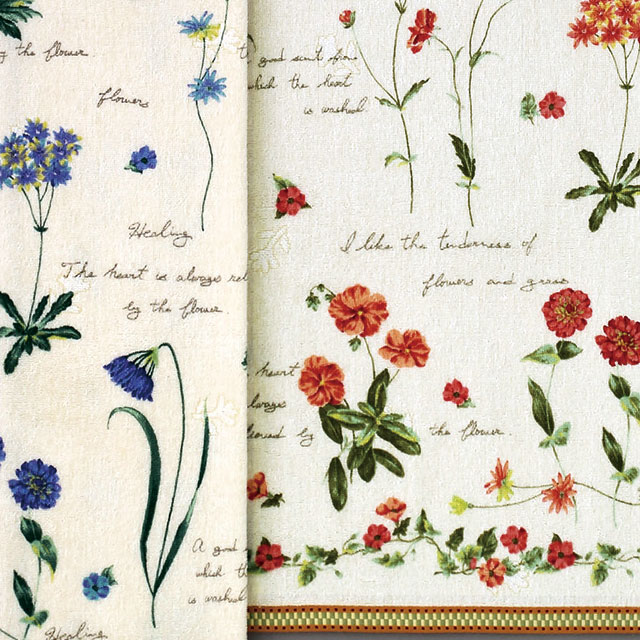 by the flower
flowers
Healing
The heart is always rel
by the flower
A good
which th
is washed
Healing
good scent from
which the heart
is washed
I like the tenderness of
flowers and grass
heart
always
by the flower.